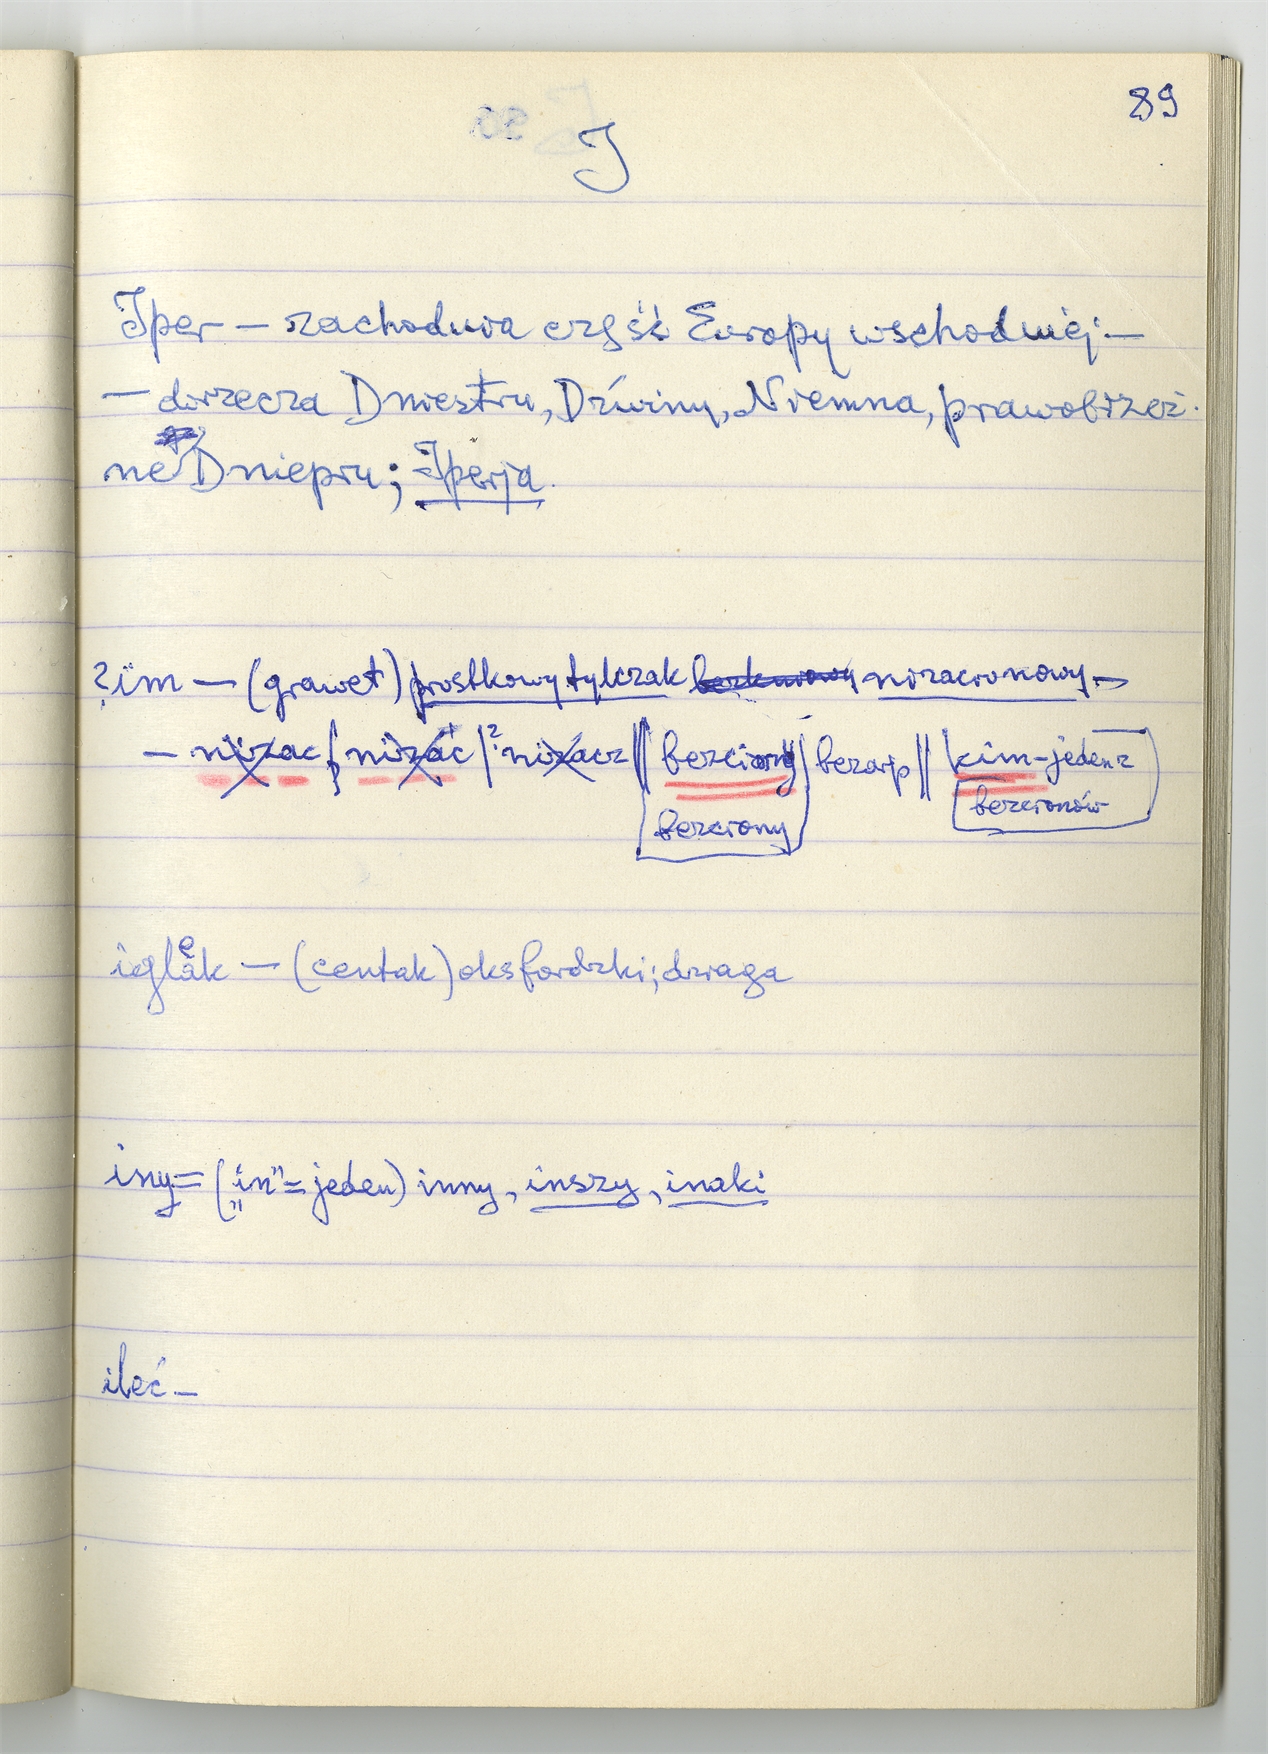 89
I
Iper – zachodnia część Europy wschodniej: –
– dorzecza Dniestru, Dźwiny, Niemna, prawobrzeż-
ne Dniepru; Iperja.
? im – (grawet) prostkowy tylczak nizacionowy –
– nizac | nizác | ? nizacz || bezciony | bezarp || kim-jeden z
bezciony
bezcionów
iglak – (centak) oksfordzki; dziaga
e
iny = („in” = jeden) inny, inszy, inaki
ileć –